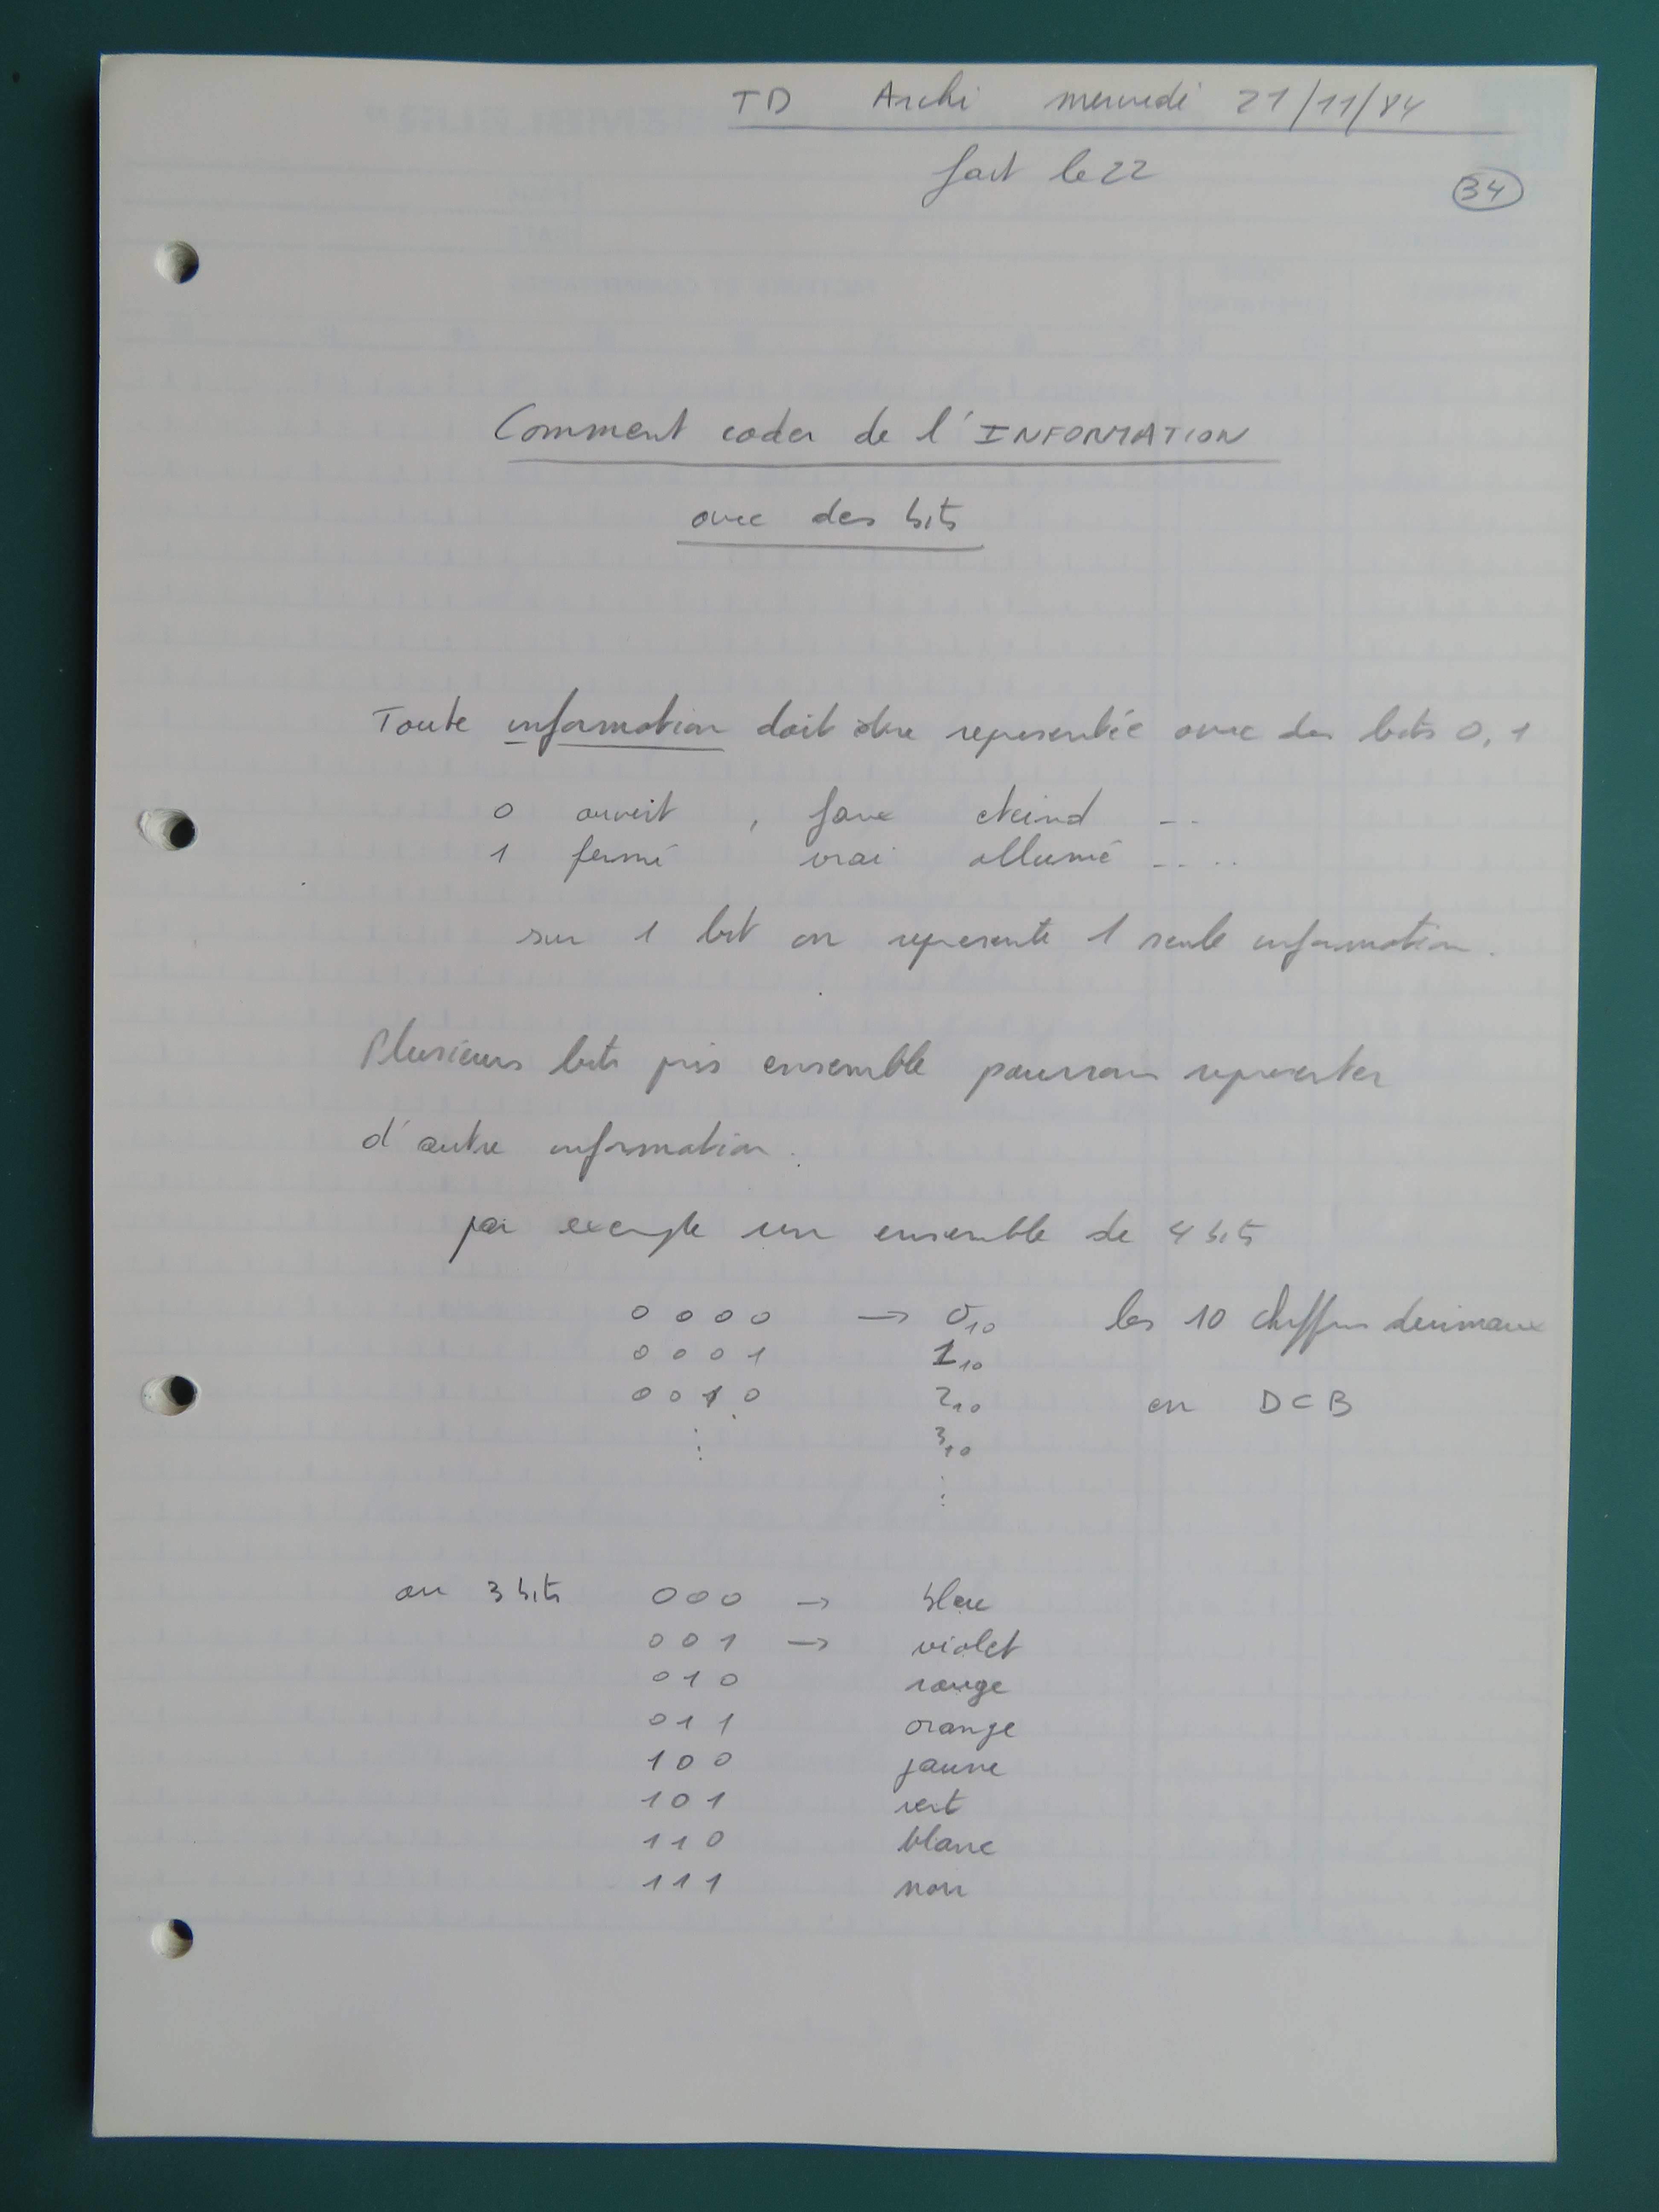 TD Archi mercredi 21/11/84
fait le 22
34
Comment coder de l'INFORMATION
avec des bits
Toute information doit être representée avec des bits 0, 1
0 ouvert , faux eteind --
1 fermé vrai allumé -- ..
sur 1 bit on represente 1 seule information.
Plusieurs bits pris ensemble pourrons representer
d'autre information.
par exemple un ensemble de 4 bits
0 0 0 0 → 0₁₀ les 10 chiffres decimaux
0 0 0 1 1₁₀
0 0 1 0 2₁₀ en DCB
⋮ 3₁₀
⋮
ou 3 bits 000 → bleu
001 → violet
010 rouge
011 orange
100 jaune
101 vert
110 blanc
111 noir